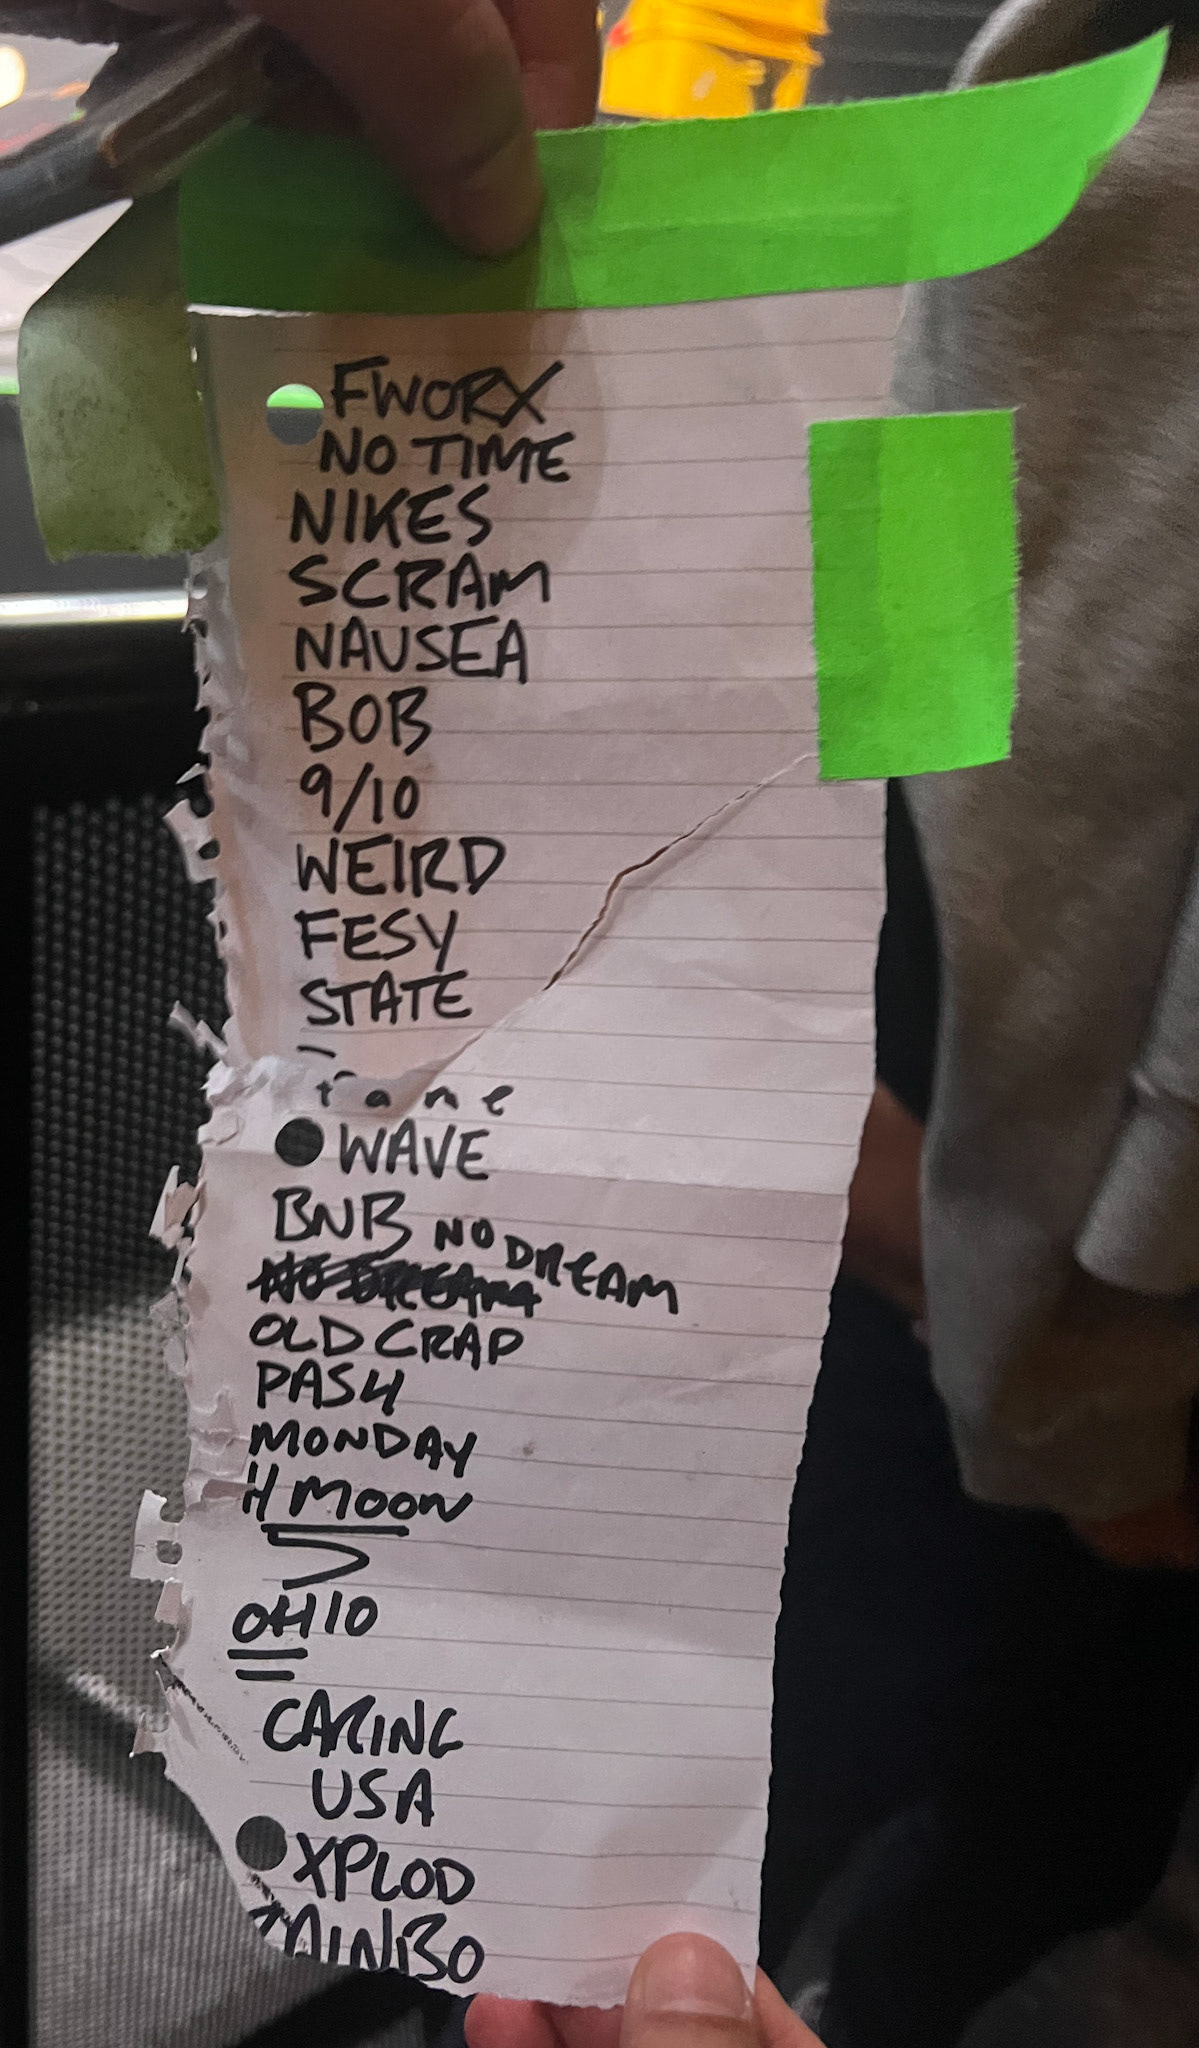 FWORX
NO TIME
NIKES
SCRAM
NAUSEA
BOB
9/10
WEIRD
FESY
STATE
WAVE
BNB NO DREAM
OLD CRAP
PASH
MONDAY
H MOON
OHIO
CARING
USA
XPLOD